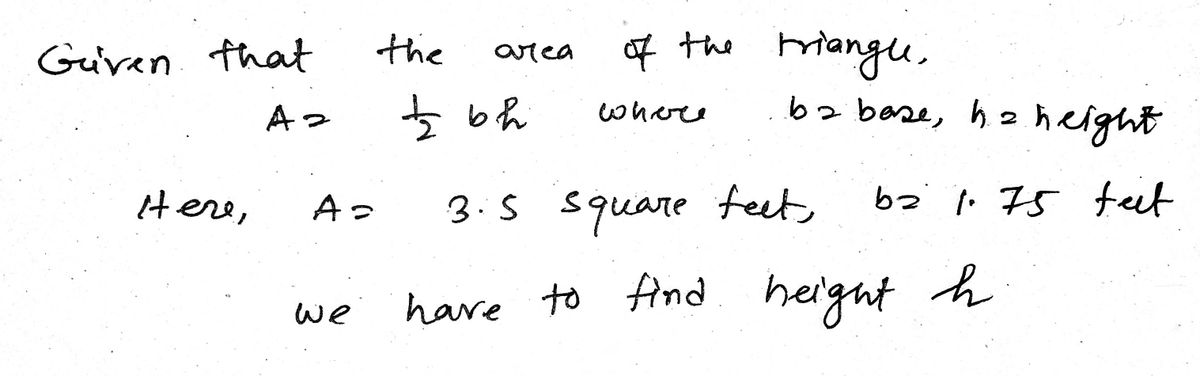 Given that the area of the triangle,
A = 1/2 bh where b = base, h = height
Here, A = 3.5 square feet, b = 1.75 feet
we have to find height h